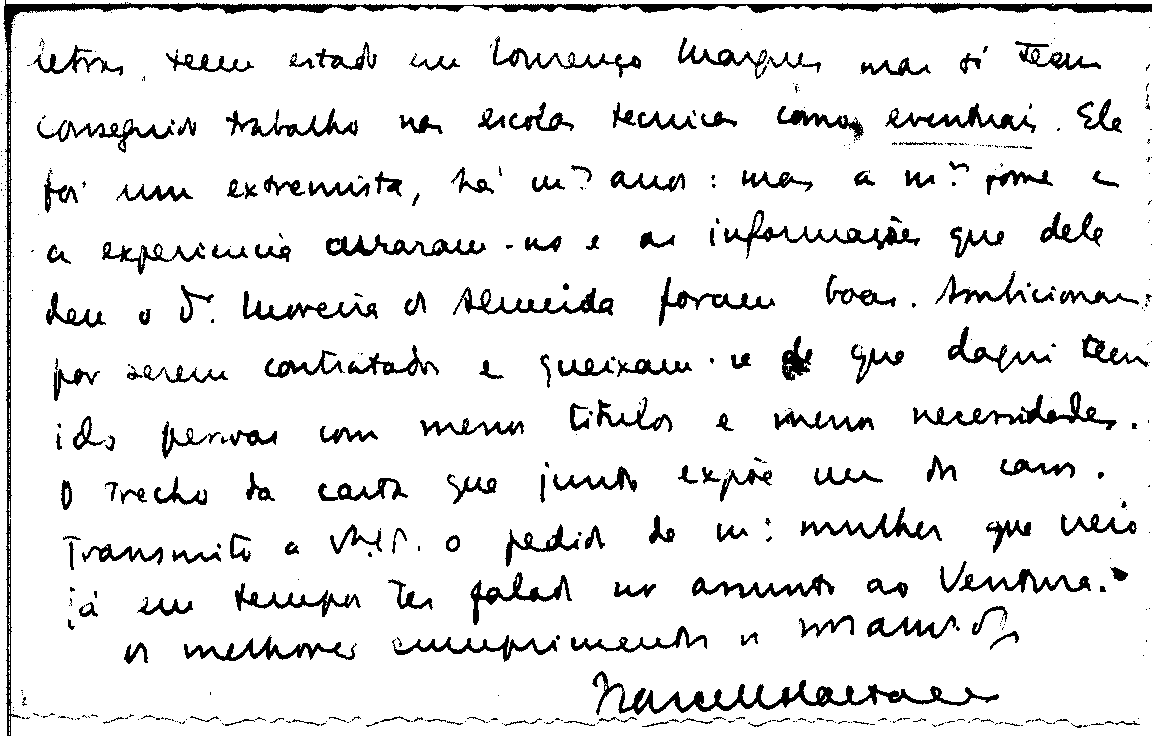 letras, teem estado em Lourenço Marques mas só teem
conseguido trabalho nas escolas tecnicas como eventuais. Ele
foi um extremista, há m.tos anos: mas a m.er, a fome e
a experiencia curaram-no e as informações que dele
deu o Dr. Moreira de Almeida foram boas. Ambicionam
por serem contratados e queixam-se de que daqui teem
ido pessoas com menos titulos e menos necessidades.
O trecho da carta que junto expõe um dos casos.
Transmito a V. o pedido de m.a mulher que veio
já em tempos ter falado no assunto ao Ventura.
Os melhores cumprimentos do
Marcello Caetano